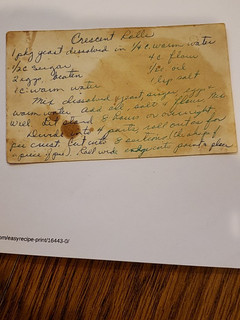 Crescent Rolls
1 pkg yeast dissolved in 1/4 c. warm water
1/2 c sugar 4 c flour
2 eggs beaten 1/2 c oil
1 c. warm water 1 tsp salt
Mix dissolved yeast, sugar, eggs &
warm water. Add oil, salt & flour. Mix
well. Let stand 8 hours or overnight.
Divide into 4 parts, roll out as for
pie crust. Cut into 8 sections (as shape of
piece of pie). Roll wide end into point & place
om/easyrecipe-print/16443-0/